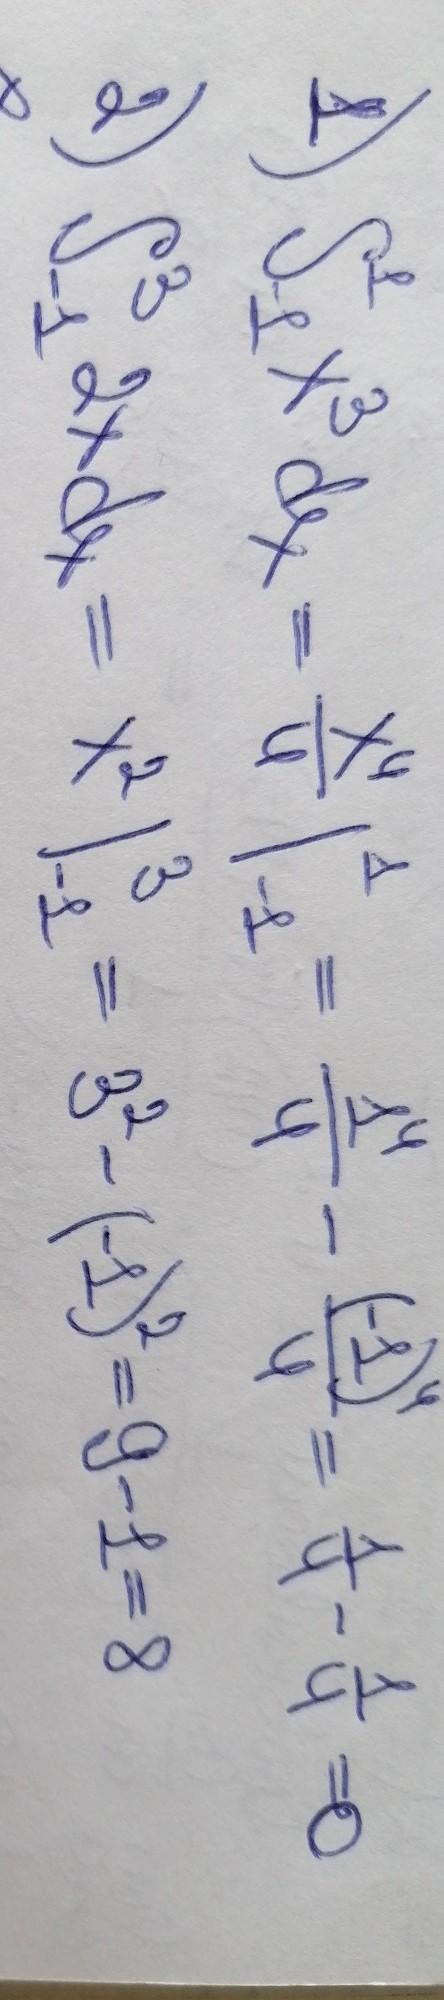 1) ∫_{-1}^{1} x³ dx = x⁴/4 |_{-1}^{1} = 1⁴/4 - (-1)⁴/4 = 1/4 - 1/4 = 0
2) ∫_{-1}^{3} 2x dx = x² |_{-1}^{3} = 3² - (-1)² = 9 - 1 = 8